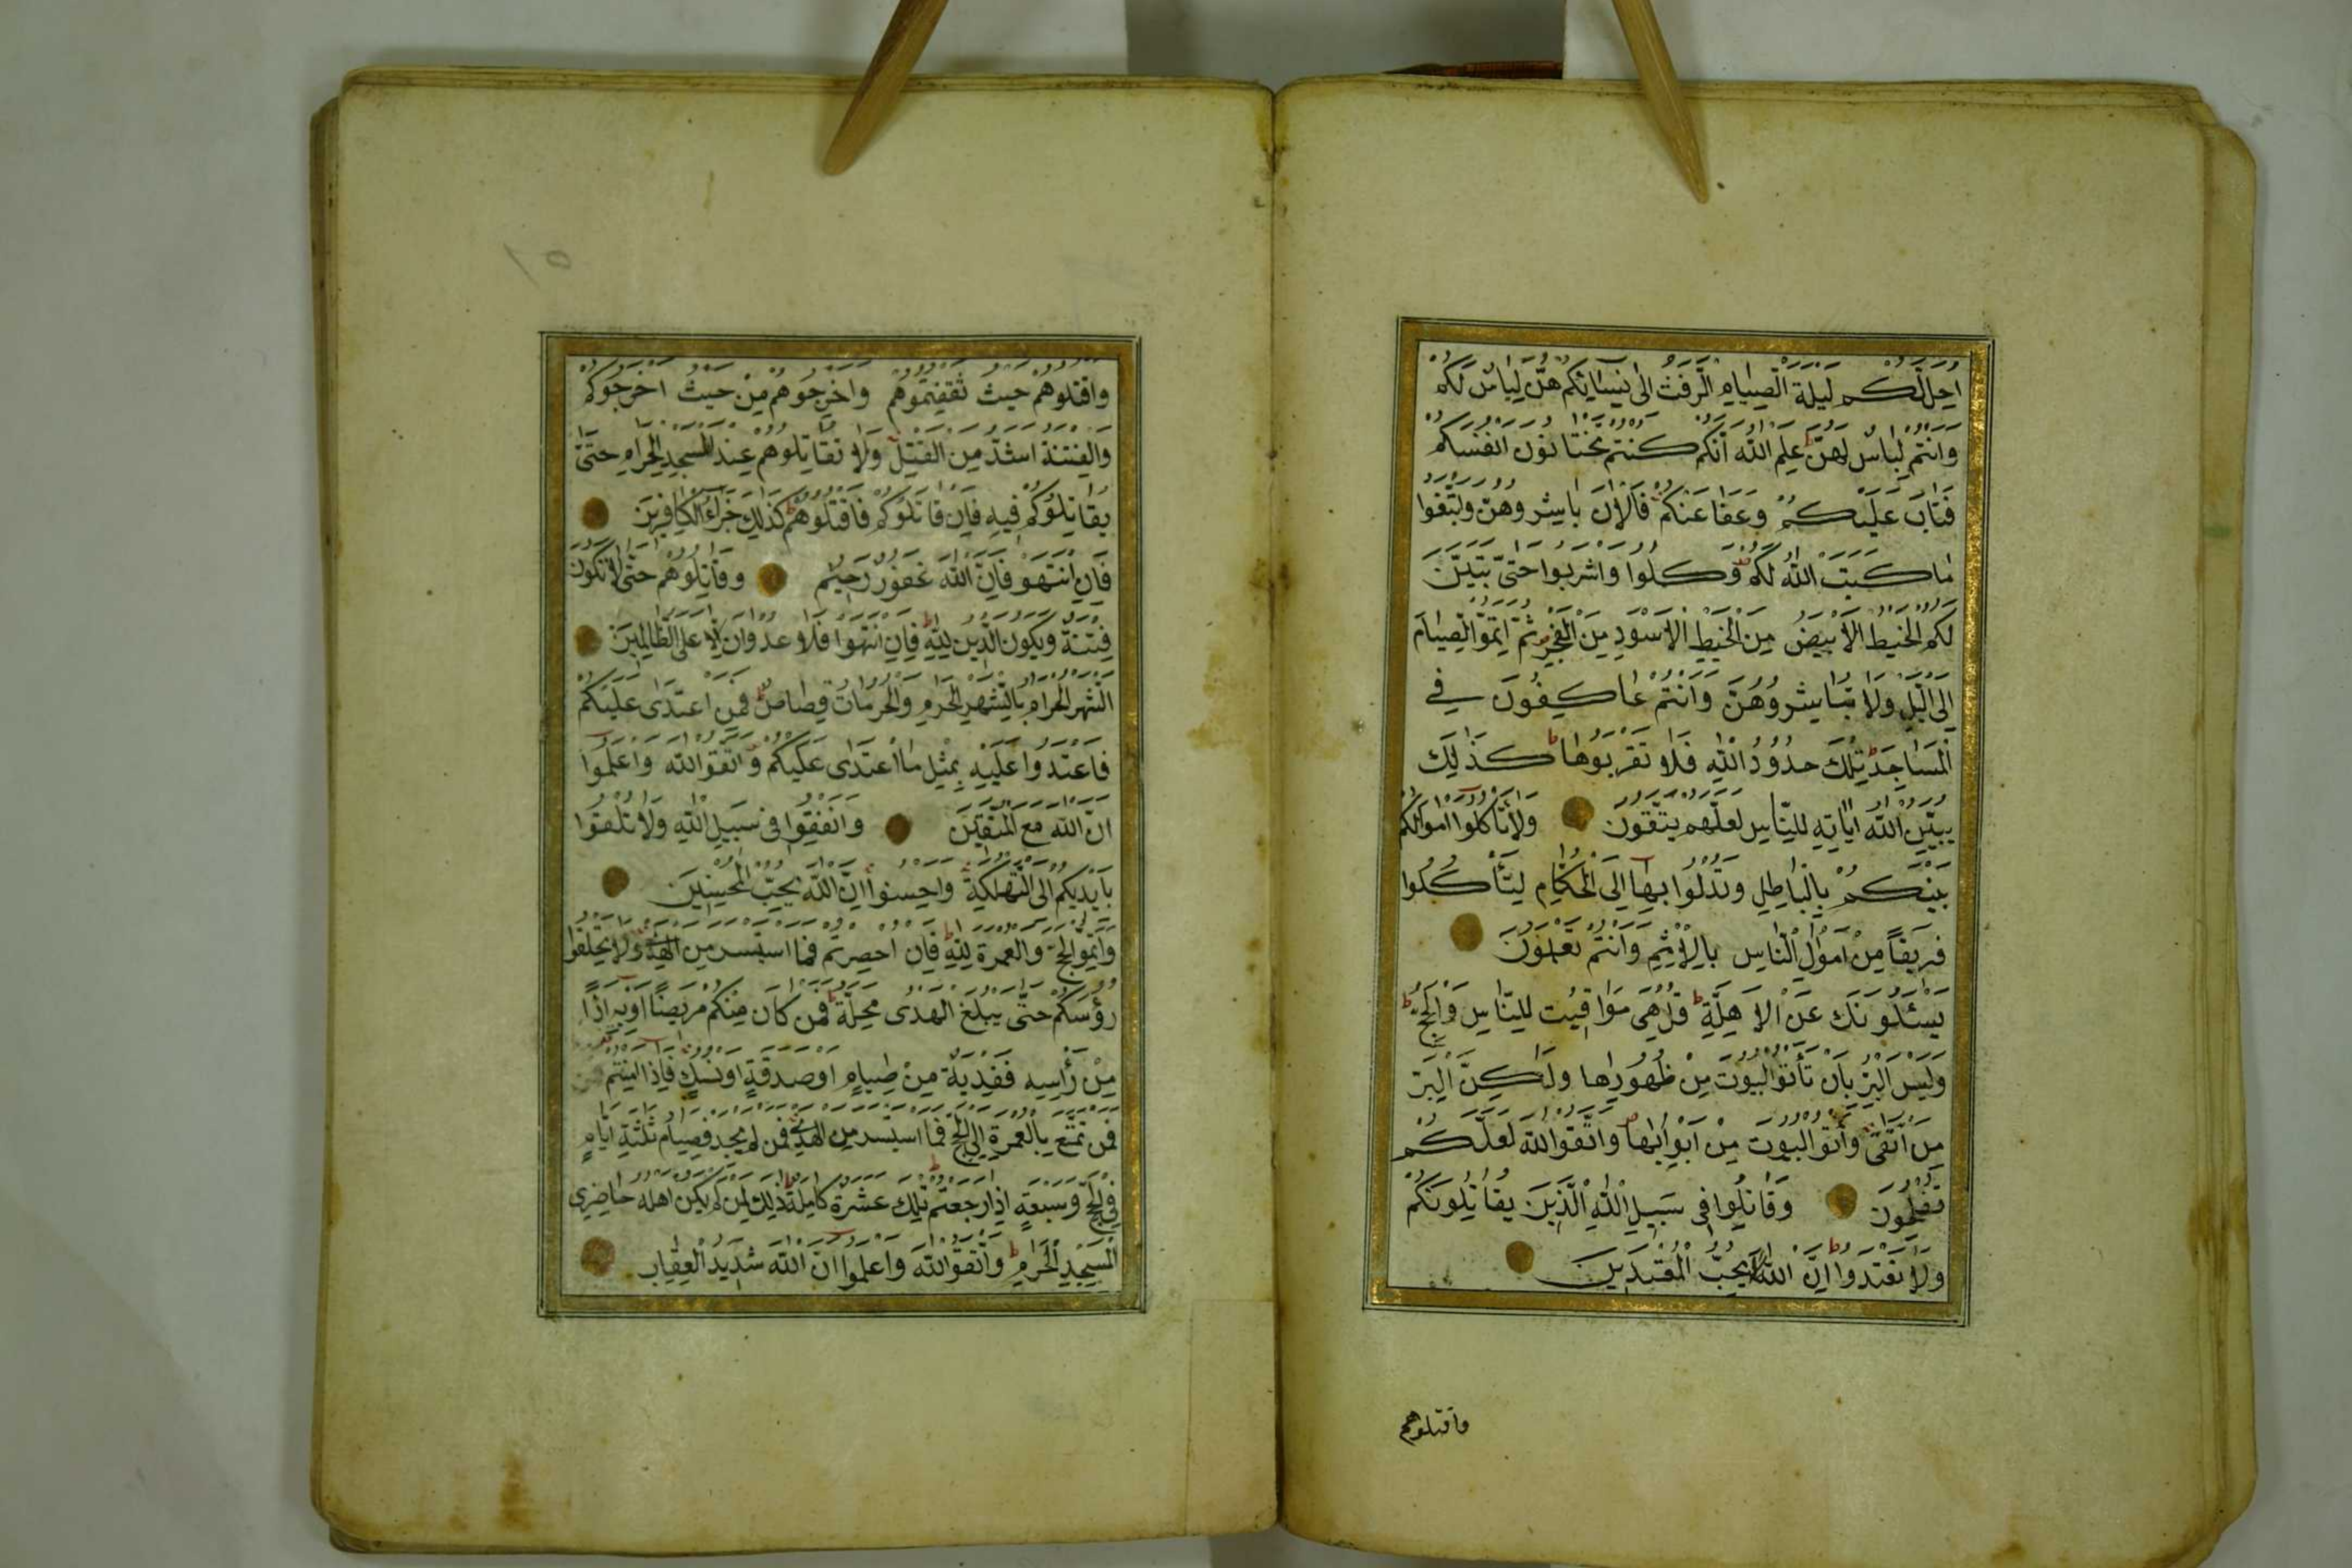 احل لكم ليلة الصيام الرفث الى نسائكم هن لباس لكم
وانتم لباس لهن علم الله انكم كنتم تختانون انفسكم
فتاب عليكم وعفا عنكم فالان باشروهن وابتغوا
ما كتب الله لكم وكلوا واشربوا حتى يتبين
لكم الخيط الابيض من الخيط الاسود من الفجر ثم اتموا الصيام
الى اليل ولا تباشروهن وانتم عاكفون في
المساجد تلك حدود الله فلا تقربوها كذلك
يبين الله اياته للناس لعلهم يتقون ولا تأكلوا اموالكم
بينكم بالباطل وتدلوا بها الى الحكام لتأكلوا
فريقا من اموال الناس بالاثم وانتم تعلمون
يسئلونك عن الاهلة قل هى مواقيت للناس والحج
وليس البر بان تأتوا البيوت من ظهورها ولكن البر
من اتقى وأتوا البيوت من ابوابها واتقوا الله لعلكم
تفلحون وقاتلوا فى سبيل الله الذين يقاتلونكم
ولا تعتدوا ان الله لا يحب المعتدين
واقتلوهم
٥١
واقتلوهم حيث ثقفتموهم واخرجوهم من حيث اخرجوكم
والفتنة اشد من القتل ولا تقاتلوهم عند المسجد الحرام حتى
يقاتلوكم فيه فان قاتلوكم فاقتلوهم كذلك جزاء الكافرين
فان انتهو فان الله غفور رحيم وقاتلوهم حتى لا تكون
فتنة ويكون الدين لله فان انتهوا فلا عدوان الا على الظالمين
الشهر الحرام بالشهر الحرم والحرمات قصاص فمن اعتدى عليكم
فاعتدوا عليه بمثل ما اعتدى عليكم واتقوا الله واعلموا
ان الله مع المتقين وانفقوا فى سبيل الله ولا تلقوا
بايديكم الى التهلكة واحسنوا ان الله يحب المحسنين
واتموا الحج والعمرة لله فان احصرتم فما استيسر من الهدى ولا تحلقوا
رؤسكم حتى يبلغ الهدى محله فمن كان منكم مريضا او به اذا
من رأسه ففدية من صيام او صدقة او نسك فاذا امنتم
فمن تمتع بالعمرة الى الحج فما استيسر من الهدى فمن لم يجد فصيام ثلثة ايام
فى الحج وسبعة اذا رجعتم تلك عشرة كاملة ذلك لمن لم يكن اهله حاضرى
المسجد الحرام واتقوا الله واعلموا ان الله شديد العقاب